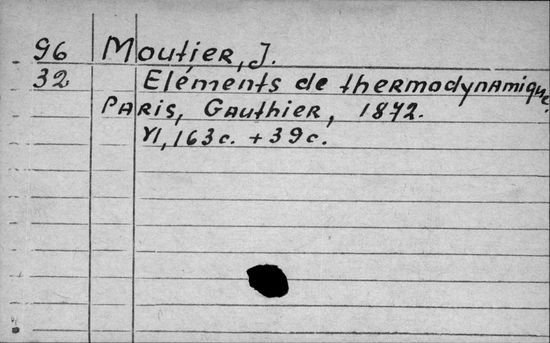 96 Moutier, J.
32 Eléments de thermodynamique.
Paris, Gauthier, 1872.
VI, 163c. + 39c.